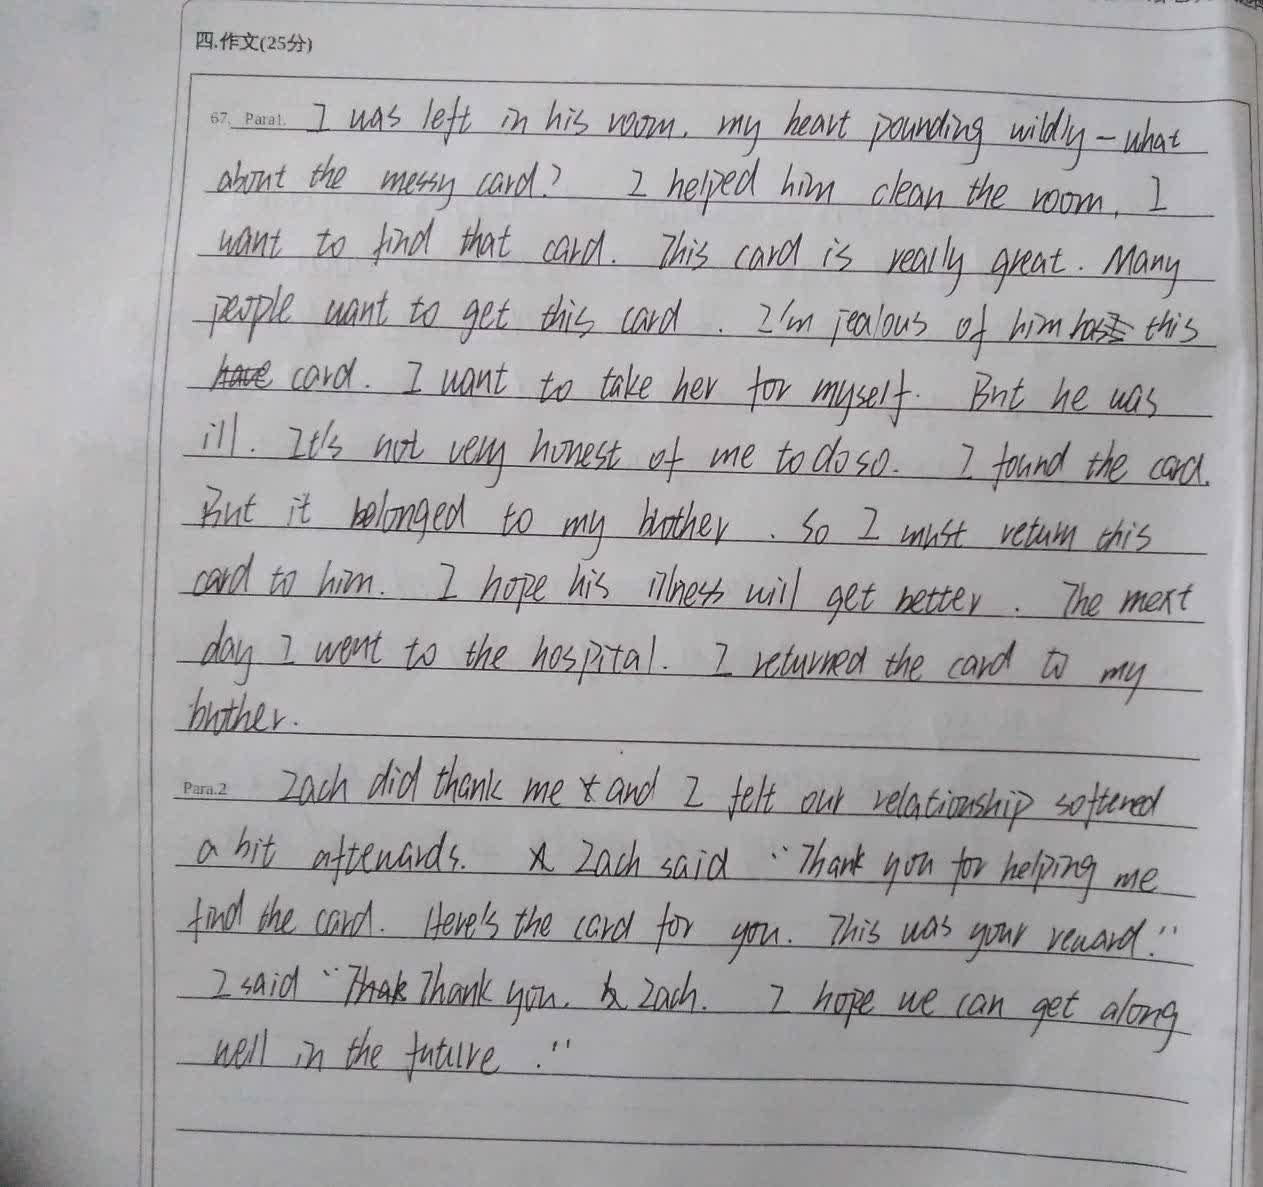 四.作文(25分)
67. Para1. I was left in his room, my heart pounding wildly – what
about the messy card? I helped him clean the room, I
want to find that card. This card is really great. Many
people want to get this card. I'm jealous of him has this
have card. I want to take her for myself. But he was
ill. It's not very honest of me to do so. I found the card.
But it belonged to my brother. So I must return this
card to him. I hope his illness will get better. The mext
day I went to the hospital. I returned the card to my
brother.
Para.2 Zach did thank me and I felt our relationship softened
a bit afterwards. Zach said "Thank you for helping me
find the card. Here's the card for you. This was your reward."
I said "Thak Thank you, Zach. I hope we can get along
well in the future."